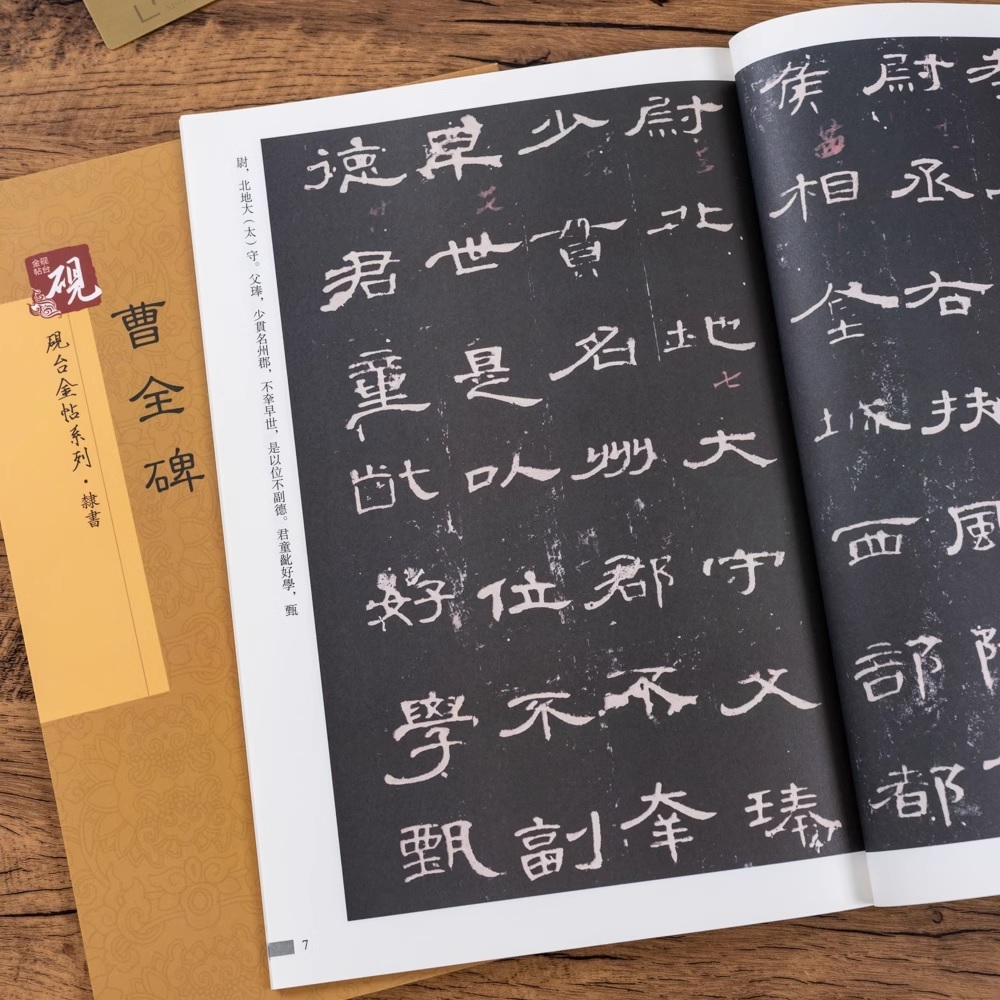 尉丞右扶風
侯相金城西部都
尉北地大守父琫
少貫名州郡不㚔
早世是以位不副
德君童齔好學甄
尉,北地大(太)守。父琫,少貫名州郡,不㚔早世,是以位不副德。君童齔好學,甄
7
曹全碑
硯
硯台
金帖
硯台金帖系列·隸書